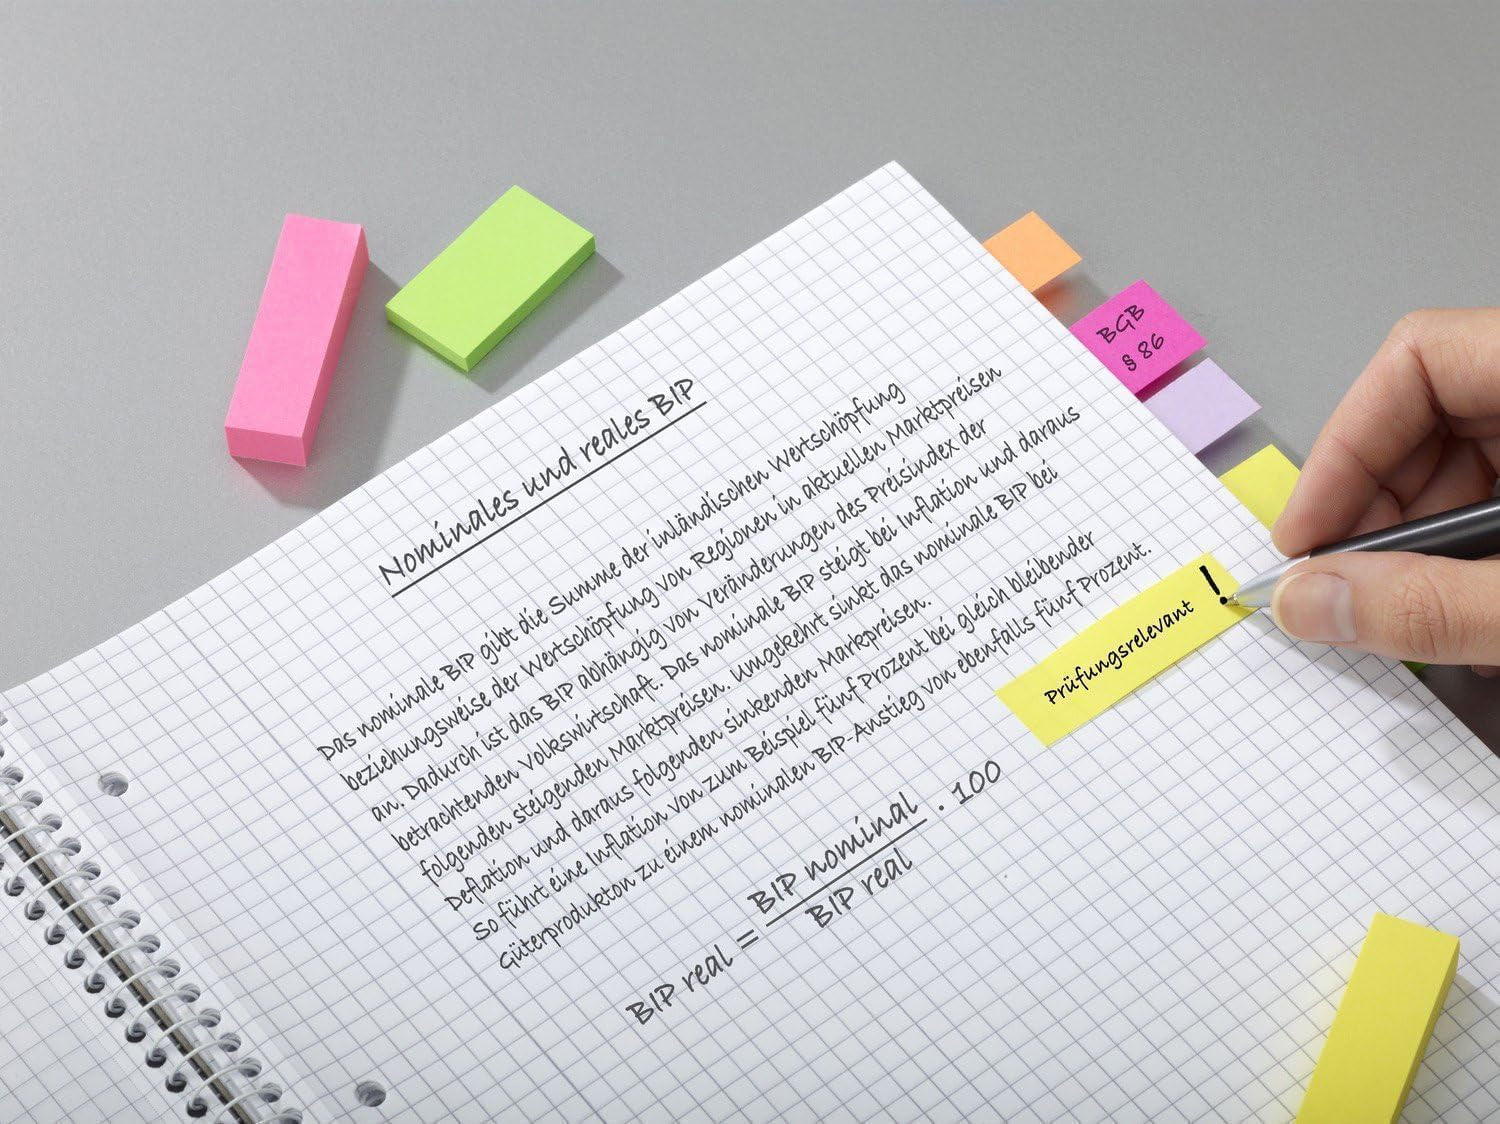 Nominales und reales BIP
Das nominale BIP gibt die Summe der inländischen Wertschöpfung
beziehungsweise der Wertschöpfung von Regionen in aktuellen Marktpreisen
an. Dadurch ist das BIP abhängig von Veränderungen des Preisindex der
betrachtenden Volkswirtschaft. Das nominale BIP steigt bei Inflation und daraus
folgenden steigenden Marktpreisen. Umgekehrt sinkt das nominale BIP bei
Deflation und daraus folgenden sinkenden Markpreisen.
So führt eine Inflation von zum Beispiel fünf Prozent bei gleich bleibender
Güterprodukton zu einem nominalen BIP-Anstieg von ebenfalls fünf Prozent.
BIP real = BIP nominal / BIP real · 100
Prüfungsrelevant !
BGB
§ 86